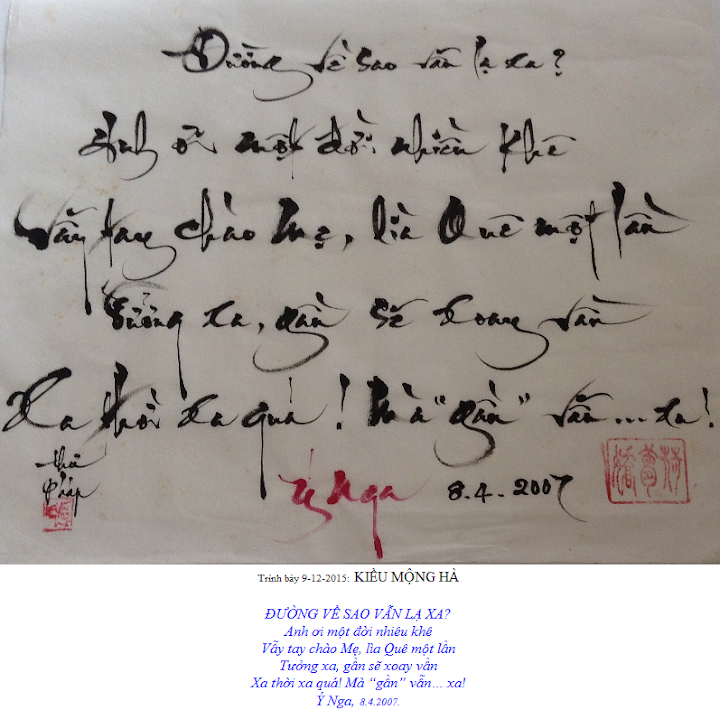 Đường về sao vẫn lạ xa?
Anh ơi một đời nhiêu khê
Vẫy tay chào Mẹ, lìa Quê một lần
Tưởng xa, gần sẽ xoay vần
Xa thời xa quá! Mà "gần" vẫn... xa!
thư
pháp
Ý Nga 8.4-2007
Trình bày 9-12-2015: KIỀU MỘNG HÀ
ĐƯỜNG VỀ SAO VẪN LẠ XA?
Anh ơi một đời nhiêu khê
Vẫy tay chào Mẹ, lìa Quê một lần
Tưởng xa, gần sẽ xoay vần
Xa thời xa quá! Mà “gần” vẫn... xa!
Ý Nga, 8.4.2007.